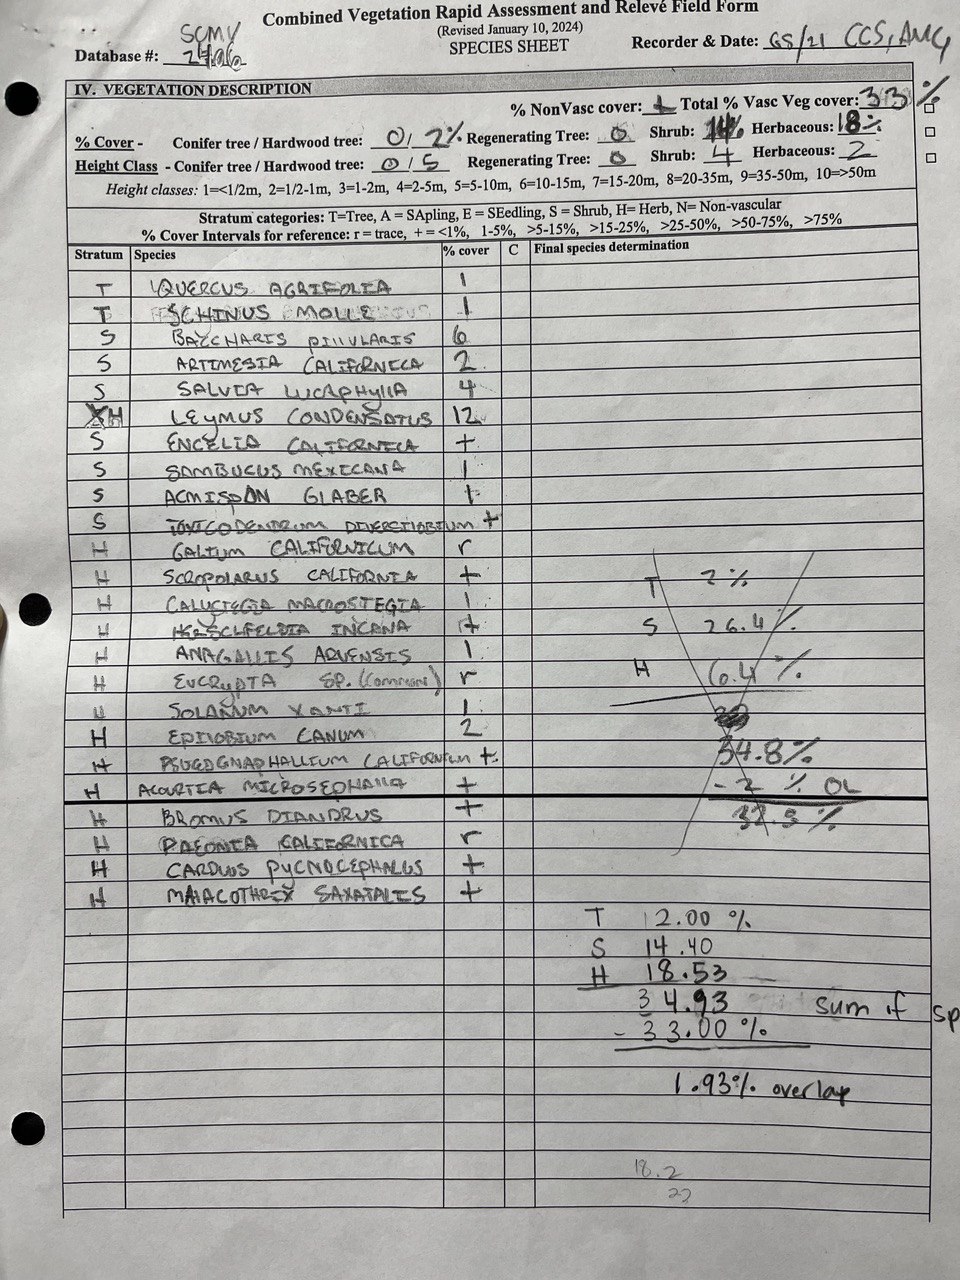 Combined Vegetation Rapid Assessment and Relevé Field Form
(Revised January 10, 2024)
SPECIES SHEET
SCMV
Database #:
Recorder & Date: 05/21 CCS, AMG
IV. VEGETATION DESCRIPTION
% NonVasc cover: + Total % Vasc Veg cover: 33 %
% Cover - Conifer tree / Hardwood tree: 0 / 2% Regenerating Tree: 0 Shrub: 14% Herbaceous: 18%
Height Class - Conifer tree / Hardwood tree: 0 / 5 Regenerating Tree: 0 Shrub: 4 Herbaceous: 2
Height classes: 1=<1/2m, 2=1/2-1m, 3=1-2m, 4=2-5m, 5=5-10m, 6=10-15m, 7=15-20m, 8=20-35m, 9=35-50m, 10=>50m
Stratum categories: T=Tree, A = SApling, E = SEedling, S = Shrub, H= Herb, N= Non-vascular
% Cover Intervals for reference: r = trace, + = <1%, 1-5%, >5-15%, >15-25%, >25-50%, >50-75%, >75%
Stratum Species % cover C Final species determination
T QUERCUS AGRIFOLIA 1
T SCHINUS MOLLE 1
S BACCHARIS PILULARIS 6
S ARTIMESIA CALIFORNECA 2
S SALVIA LUCAPHYLLA 4
H LEYMUS CONDENSATUS 12
S ENCELIA CALIFORNECA +
S SAMBUCUS MEXICANA 1
S ACMISPON GLABER +
S TOXICODENDRUM DIVERSILOBIUM +
H GALIUM CALIFORNICUM r
H SCROPOLARUS CALIFORNIA +
T 2%
H CALYSTEGIA MACROSTEGIA 1
H HERSCLFELDIA INCANA +
S 26.4%
H ANAGALLIS ARVENSIS 1
H 6.4%
H EUCRYPTA SP. (Common) r
H SOLANUM XANTI 1
H EPILOBIUM CANUM 2
34.8%
H PSUEDGNAPHALLIUM CALIFORNIUM +
H ACOURTIA MICROSEPHALLA +
- 2 % OL
H BROMUS DIANDRUS +
H PAEONIA CALIFORNICA r
H CARDUUS PYCNOCEPHALUS +
H MALACOTHREX SAXATALES +
T 2.00 %
S 14.40
H 18.53
34.93 sum if sp
- 33.00 %
1.93% overlap
18.2
22